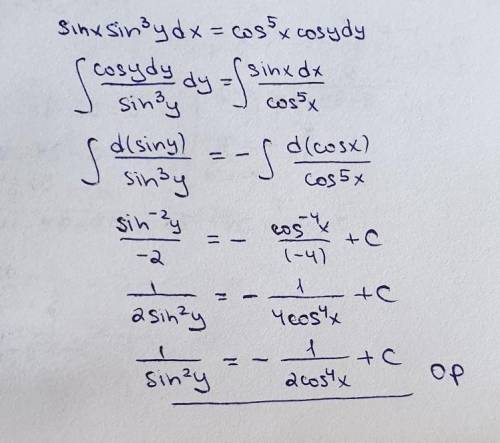 sinx sin³y dx = cos⁵x cosy dy
∫ cosy dy / sin³y dy = ∫ sinx dx / cos⁵x
∫ d(siny) / sin³y = - ∫ d(cosx) / cos5x
sin⁻²y / -2 = - cos⁻⁴x / (-4) + C
1 / 2sin²y = - 1 / 4cos⁴x + C
1 / sin²y = - 1 / 2cos⁴x + C OP